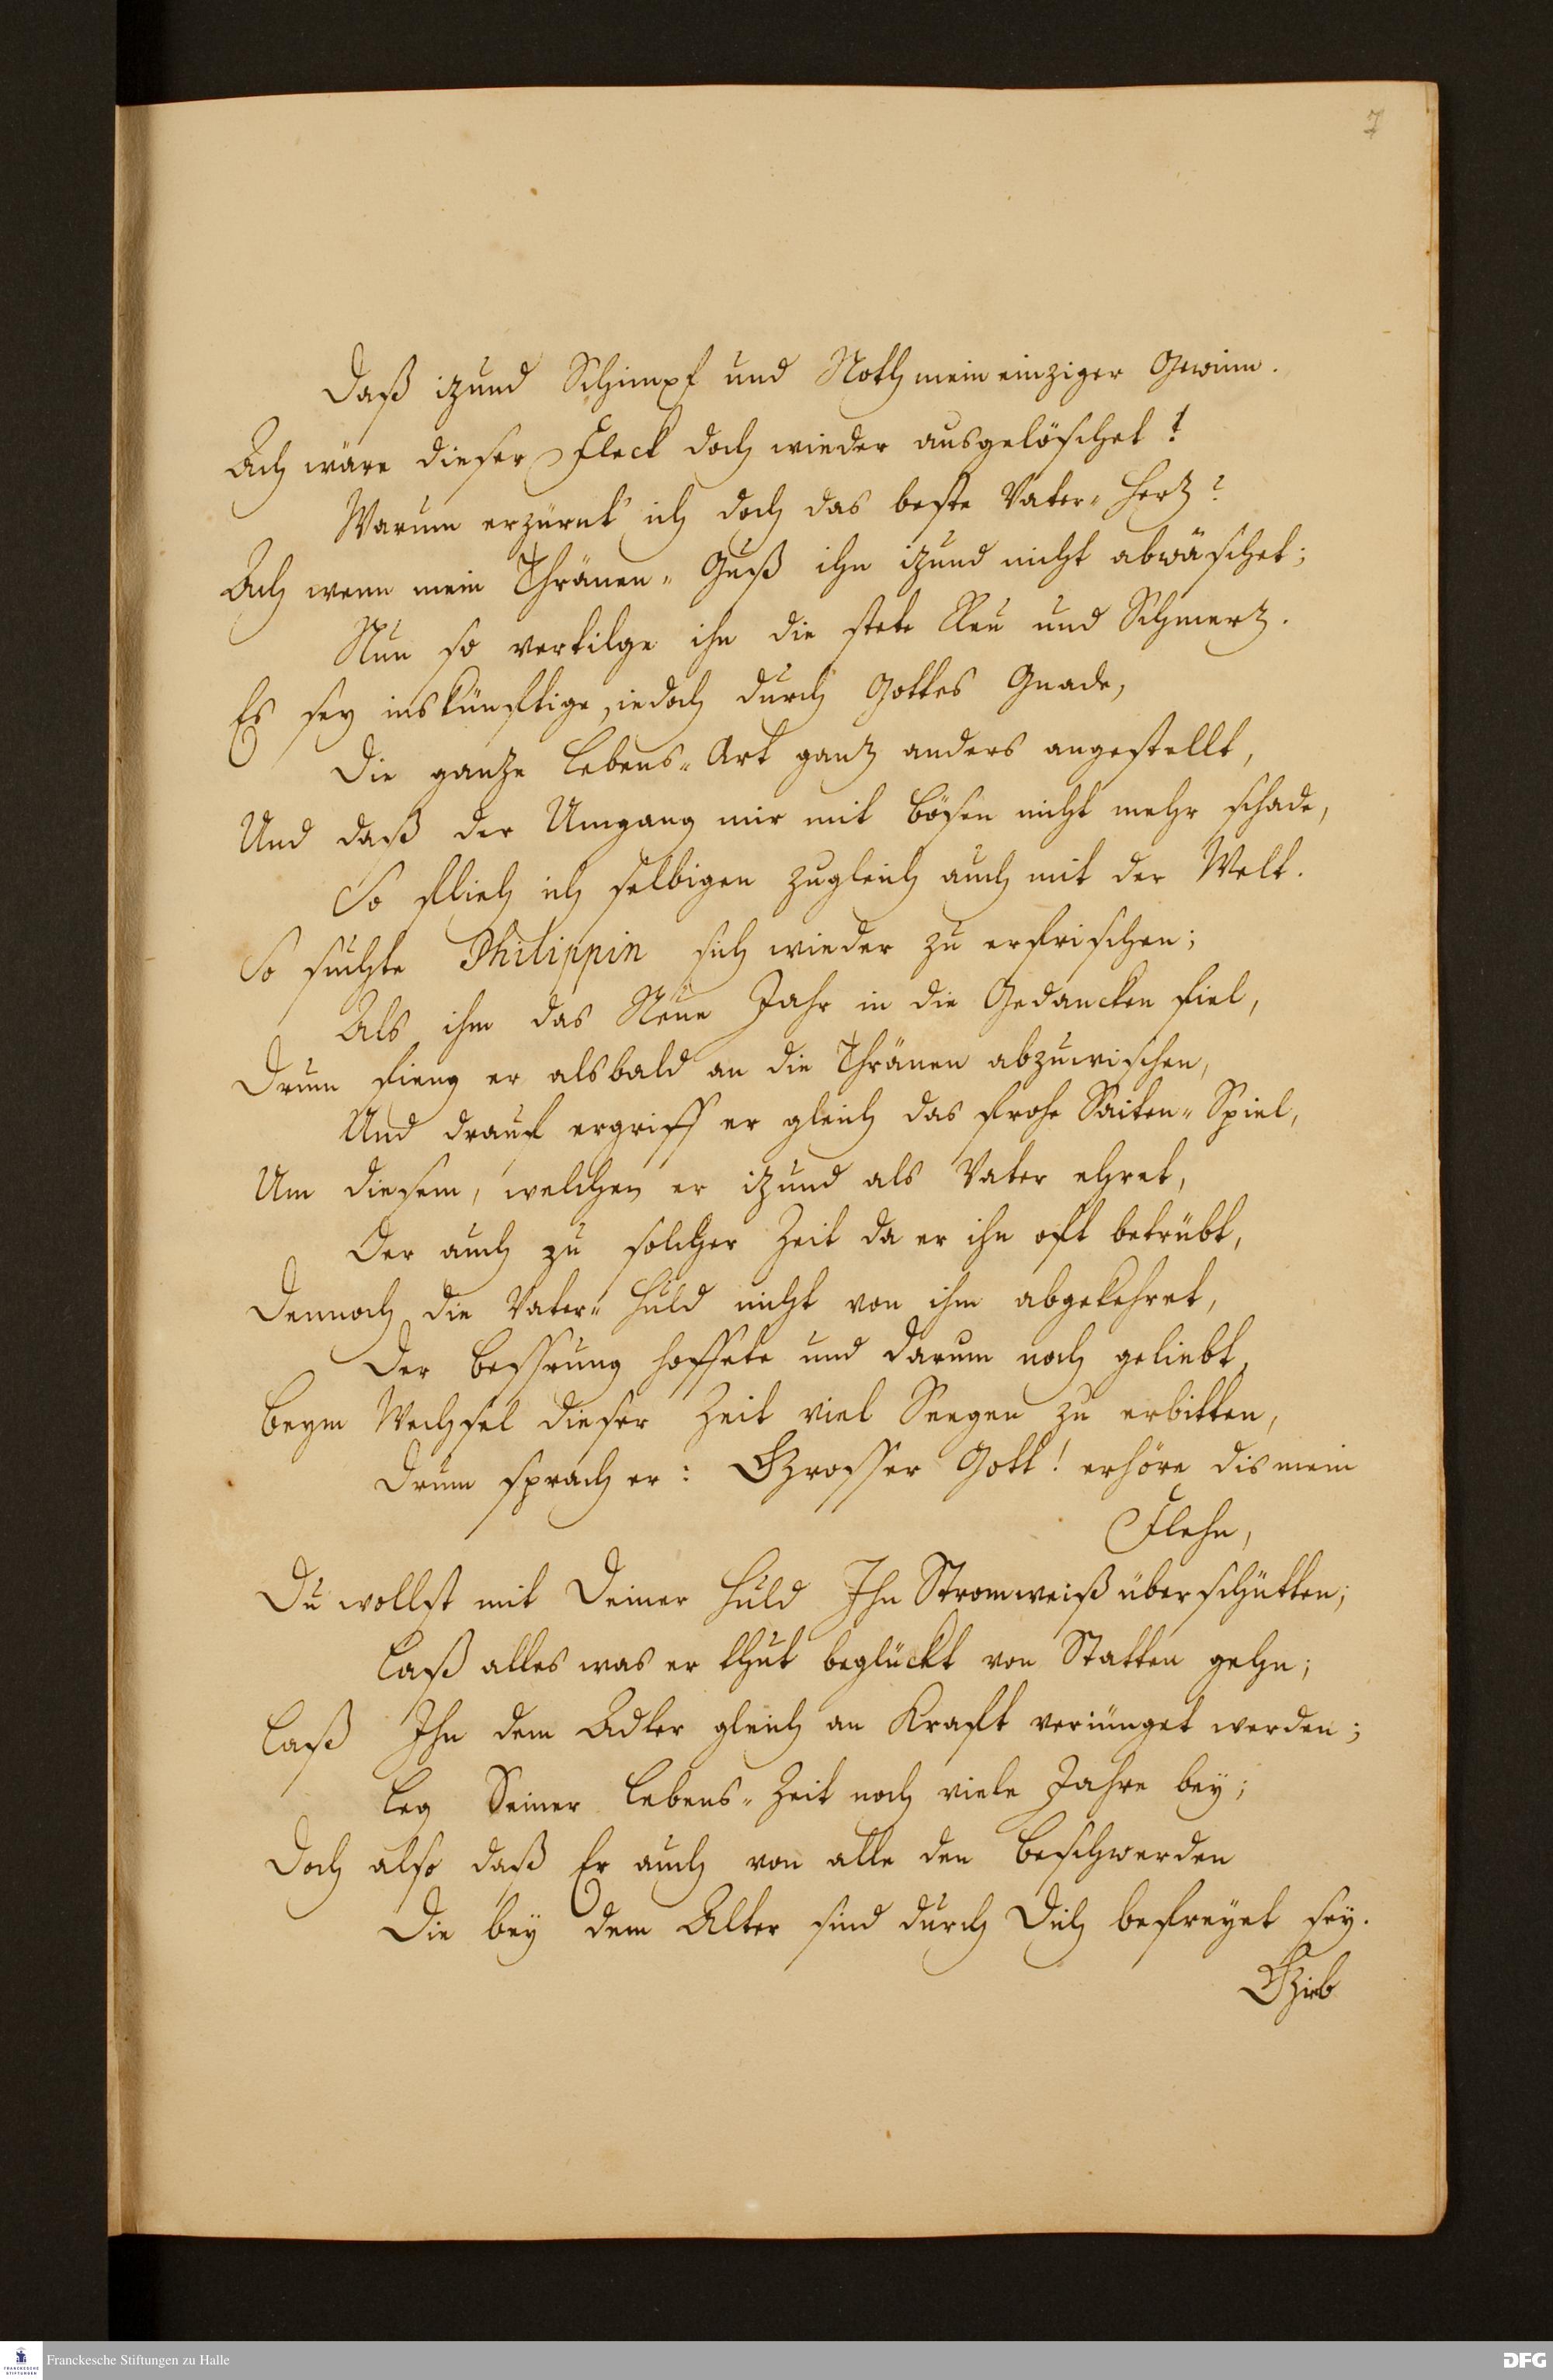 7
Daß izund Schimpf und Noth mein einziger Gewinn.
Ach wäre dieser Fleck doch wieder ausgelöschet!
Warum erzürnt' ich doch das beste Vater-Hertz?
Ach wenn mein Thränen-Guß ihn izund nicht abwäschet;
Nun so vertilge ihn die stete Reu und Schmertz.
Es sey inskünftige, iedoch durch Gottes Gnade,
Die ganze Lebens-Art gantz anders angestellt,
Und daß der Umgang mir mit Bösen nicht mehr schade,
So flieh ich selbigen zugleich auch mit der Welt.
So suchte Philippin sich wieder zu erfrischen;
Als ihm das Neue Jahr in die Gedancken fiel,
Drum fieng er alsbald an die Thränen abzuwischen,
Und drauf ergriff er gleich das frohe Saiten-Spiel,
Um diesem, welchen er izund als Vater ehret,
Der auch zu solcher Zeit da er ihn oft betrübt,
Dennoch die Vater-Huld nicht von ihm abgekehret,
Der Bessrung hoffete und darum noch geliebt,
Beym Wechsel dieser Zeit viel Seegen zu erbitten,
Drum sprach er: Grosser Gott! erhöre dis mein
Flehn,
Du wollst mit Deiner Huld Ihn Stromweiß überschütten;
Laß alles was er thut beglückt von Statten gehn;
Laß Ihn dem Adler gleich an Kraft veriünget werden;
Leg Seiner Lebens-Zeit noch viele Jahre bey;
Doch also daß Er auch von alle den Beschwerden
Die bey dem Alter sind durch Dich befreyet sey.
Gieb
FRANCKESCHE STIFTUNGEN
Franckesche Stiftungen zu Halle
DFG